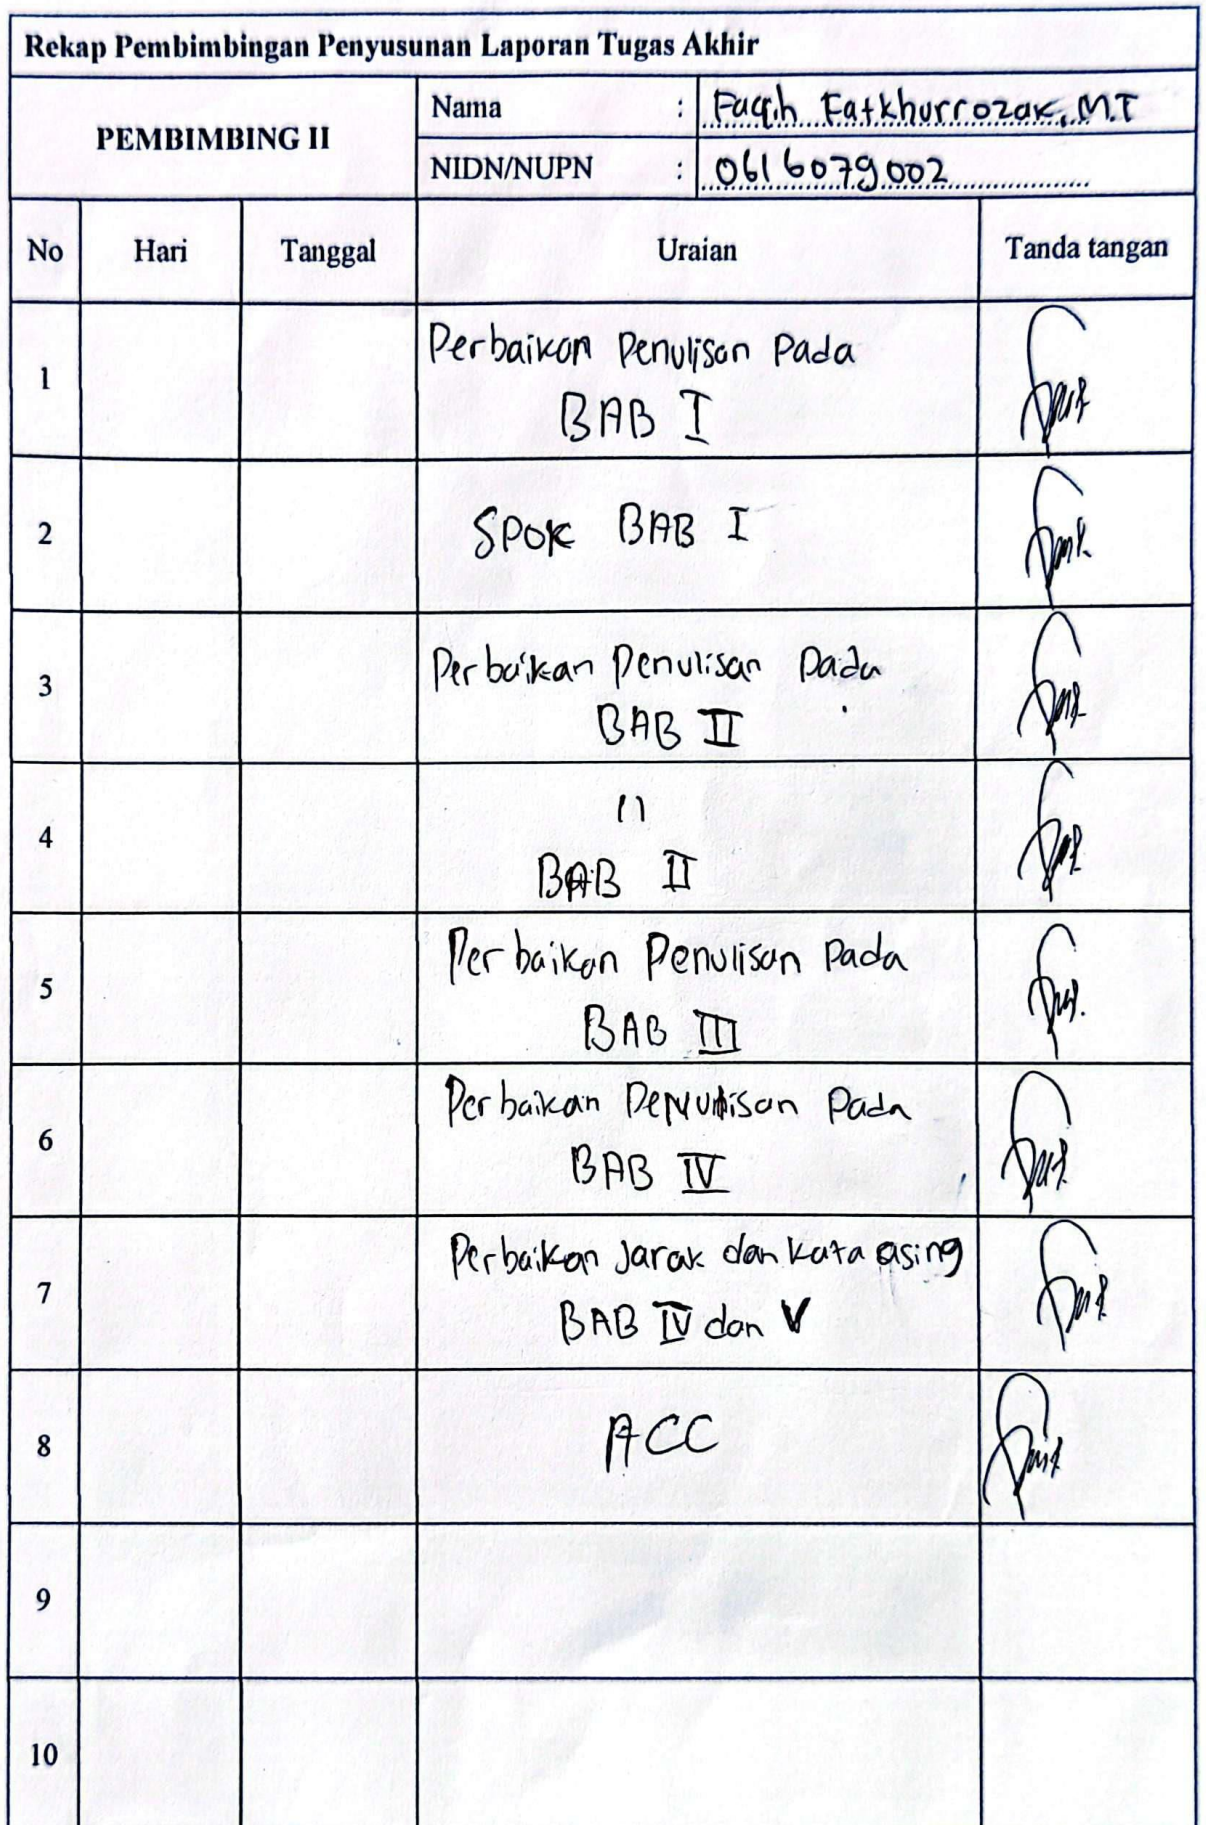 Rekap Pembimbingan Penyusunan Laporan Tugas Akhir
PEMBIMBING II
Nama : Faqih Fatkhurrozak, M.T
NIDN/NUPN : 0616079002
No Hari Tanggal Uraian Tanda tangan
1 Perbaikan Penulisan Pada
BAB I
2 SPOK BAB I
3 Perbaikan Penulisan Pada
BAB II
4 11
BAB II
5 Perbaikan Penulisan Pada
BAB III
6 Perbaikan Penulisan Pada
BAB IV
7 Perbaikan Jarak dan Kata asing
BAB IV dan V
8 ACC
9
10